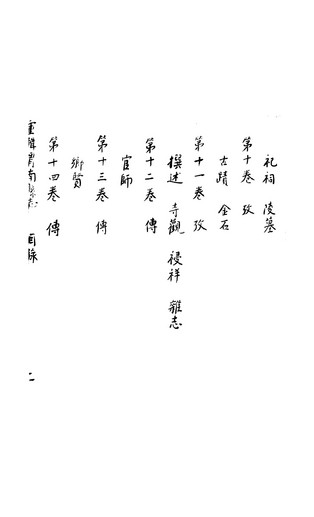 礼祠 陵墓
第十卷 攷
古蹟 金石
第十一卷 攷
撰述 寺觀 祲祥 雜志
第十二卷 傳
官師
第十三卷 傳
鄉賢
第十四卷 傳
重輯渭南縣志 目錄 二